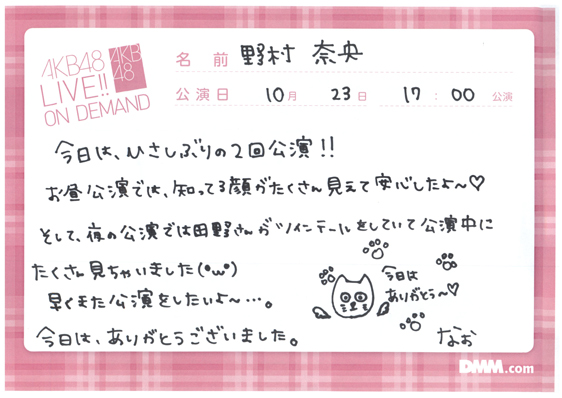 AKB48
LIVE!!
ON DEMAND
AKB
48
名前 野村 奈央
公演日 10月 23日 17:00公演
今日は、ひさしぶりの2回公演!!
お昼公演では、知ってる顔がたくさん見えて安心したよ〜♡
そして、夜の公演では田野さんがツインテールをしていて公演中に
たくさん見ちゃいました(・ω・)
早くまた公演をしたいよ〜…。
今日は、ありがとうございました。
今日は
ありがとう〜♡
なお
DMM.com